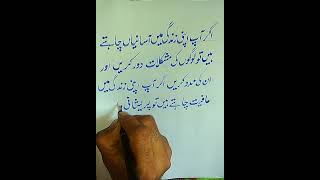 اگر آپ اپنی زندگی میں آسانیاں چاہتے
ہیں تو لوگوں کی مشکلات دور کریں اور
ان کی مدد کریں اگر آپ اپنی زندگی میں
عافیت چاہتے ہیں تو پریشانی